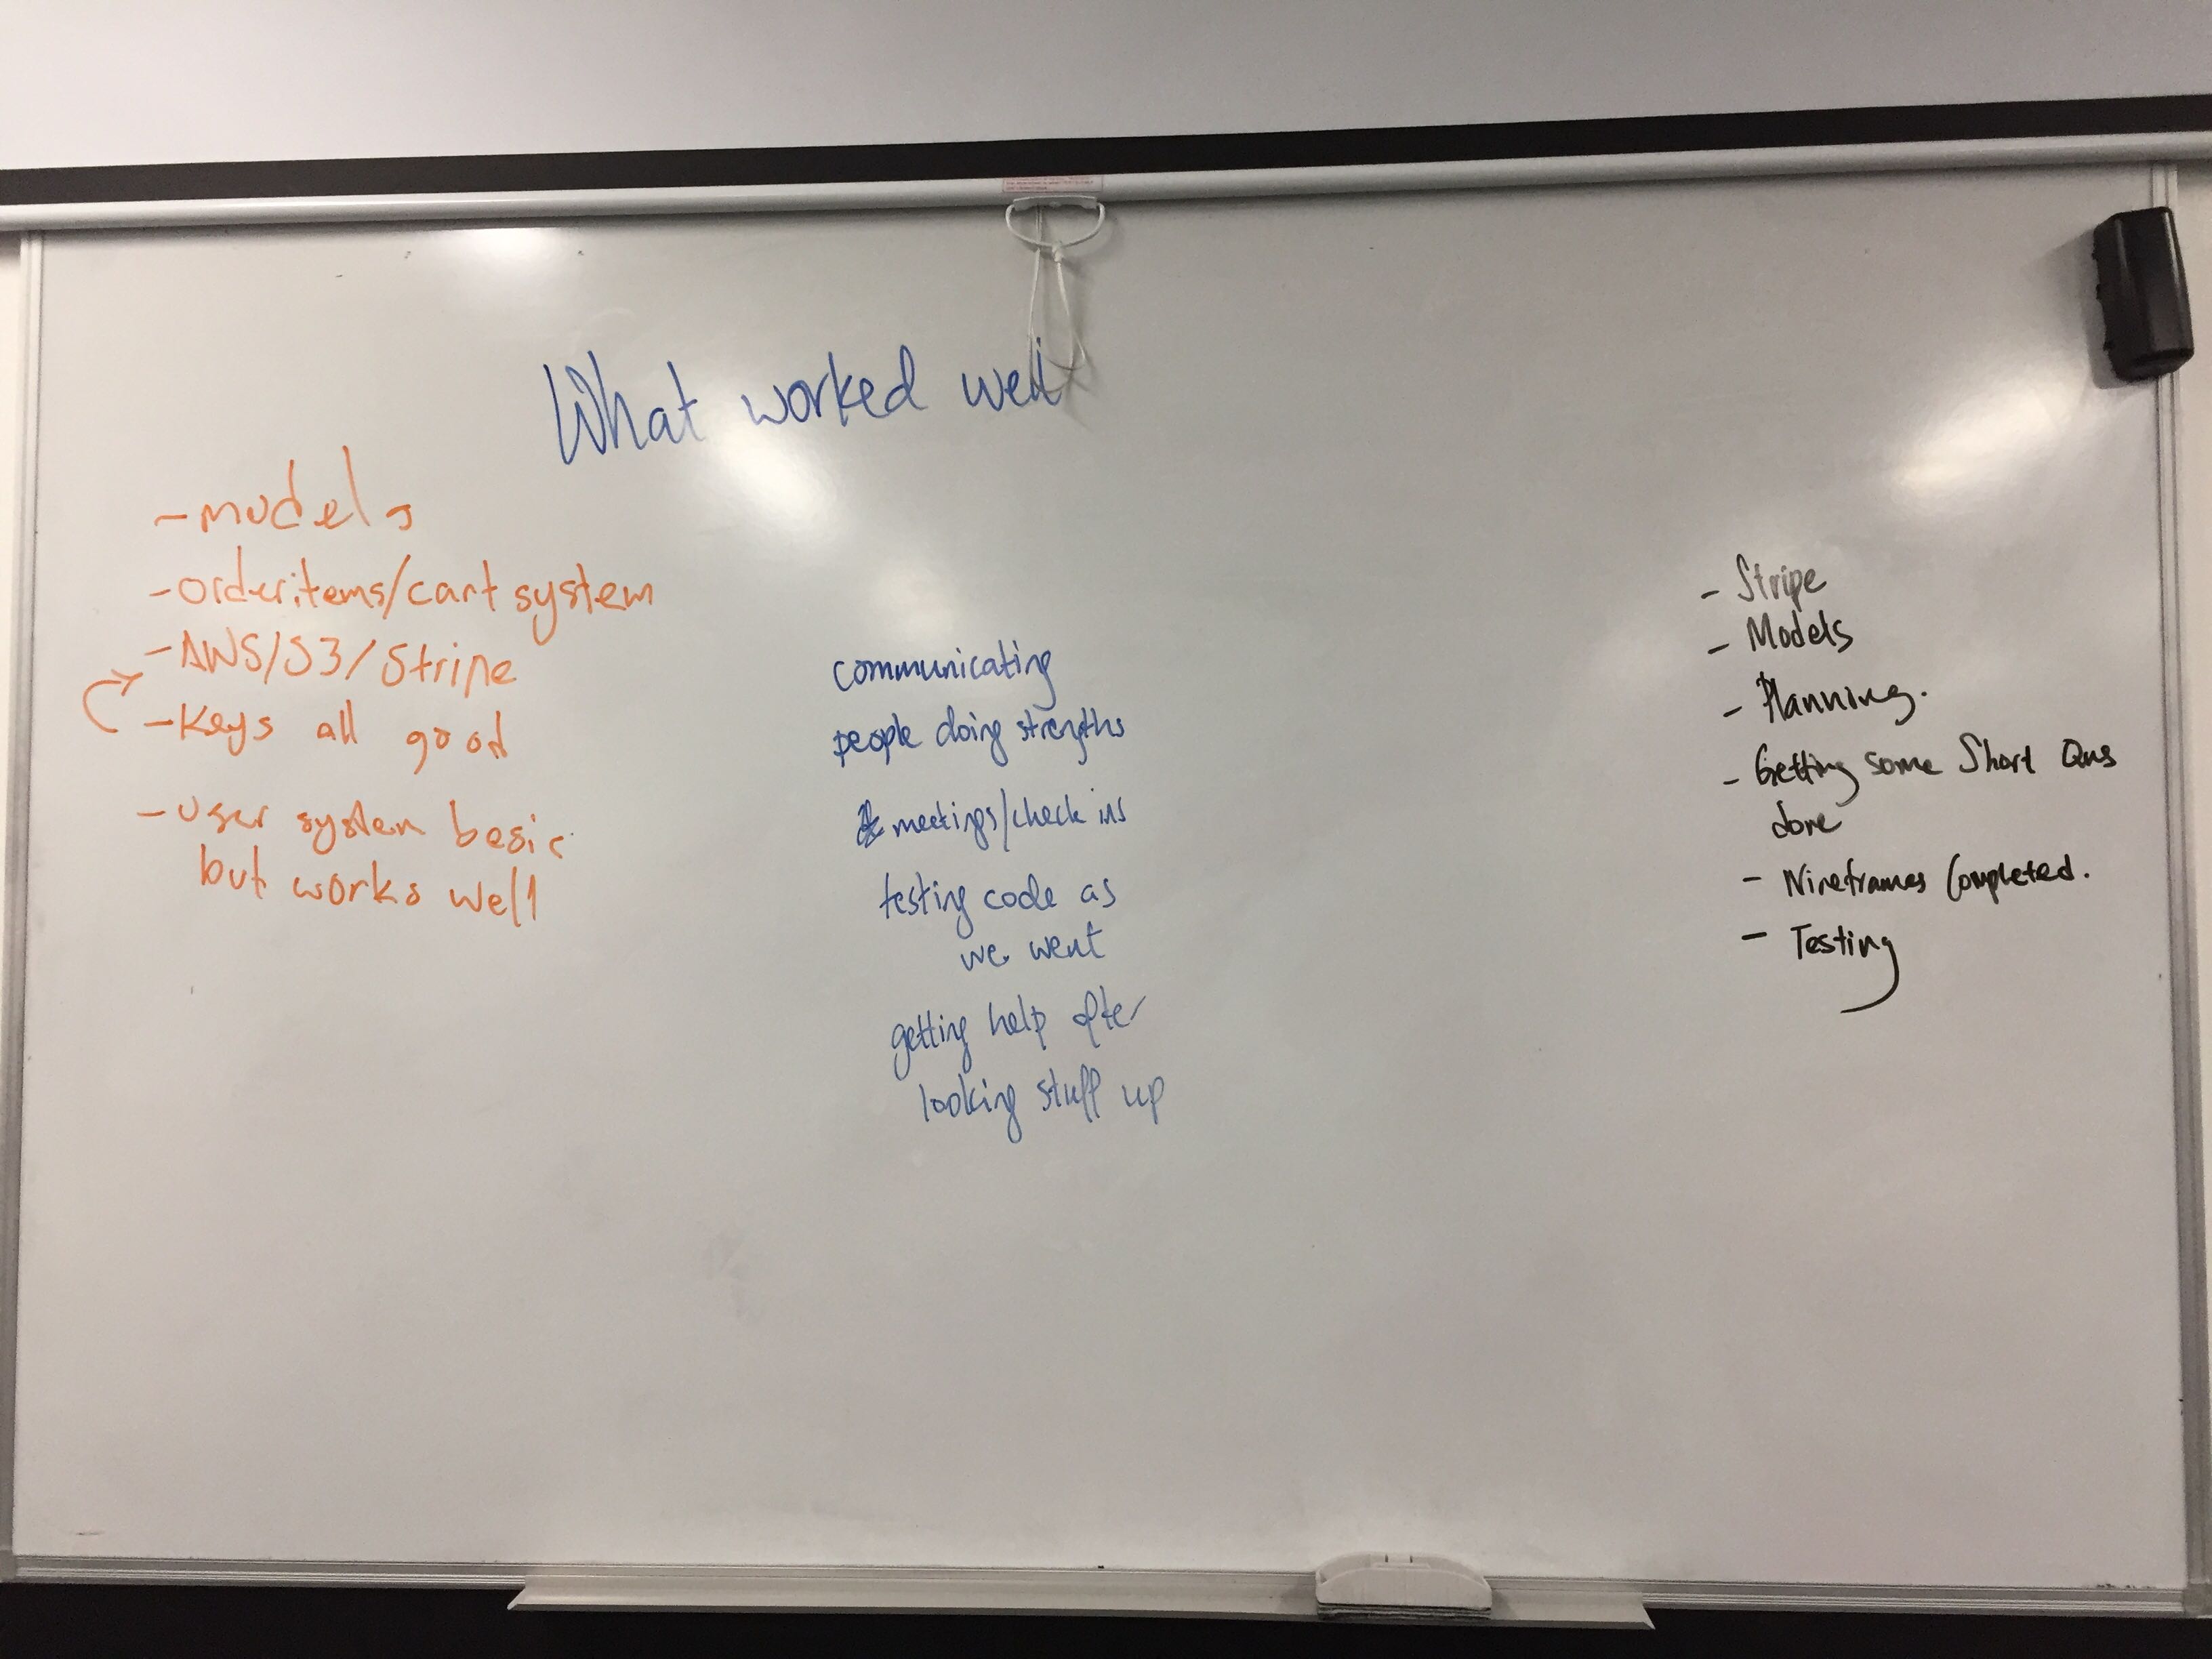 What worked well
- models
- orderitems/cart system
- AWS/S3/Stripe
- Keys all good
- user system basic
but works well
communicating
people doing strengths
meetings/check ins
testing code as
we went
getting help after
looking stuff up
- Stripe
- Models
- Planning.
- Getting some Short Qns
done
- Wireframes Completed.
- Testing